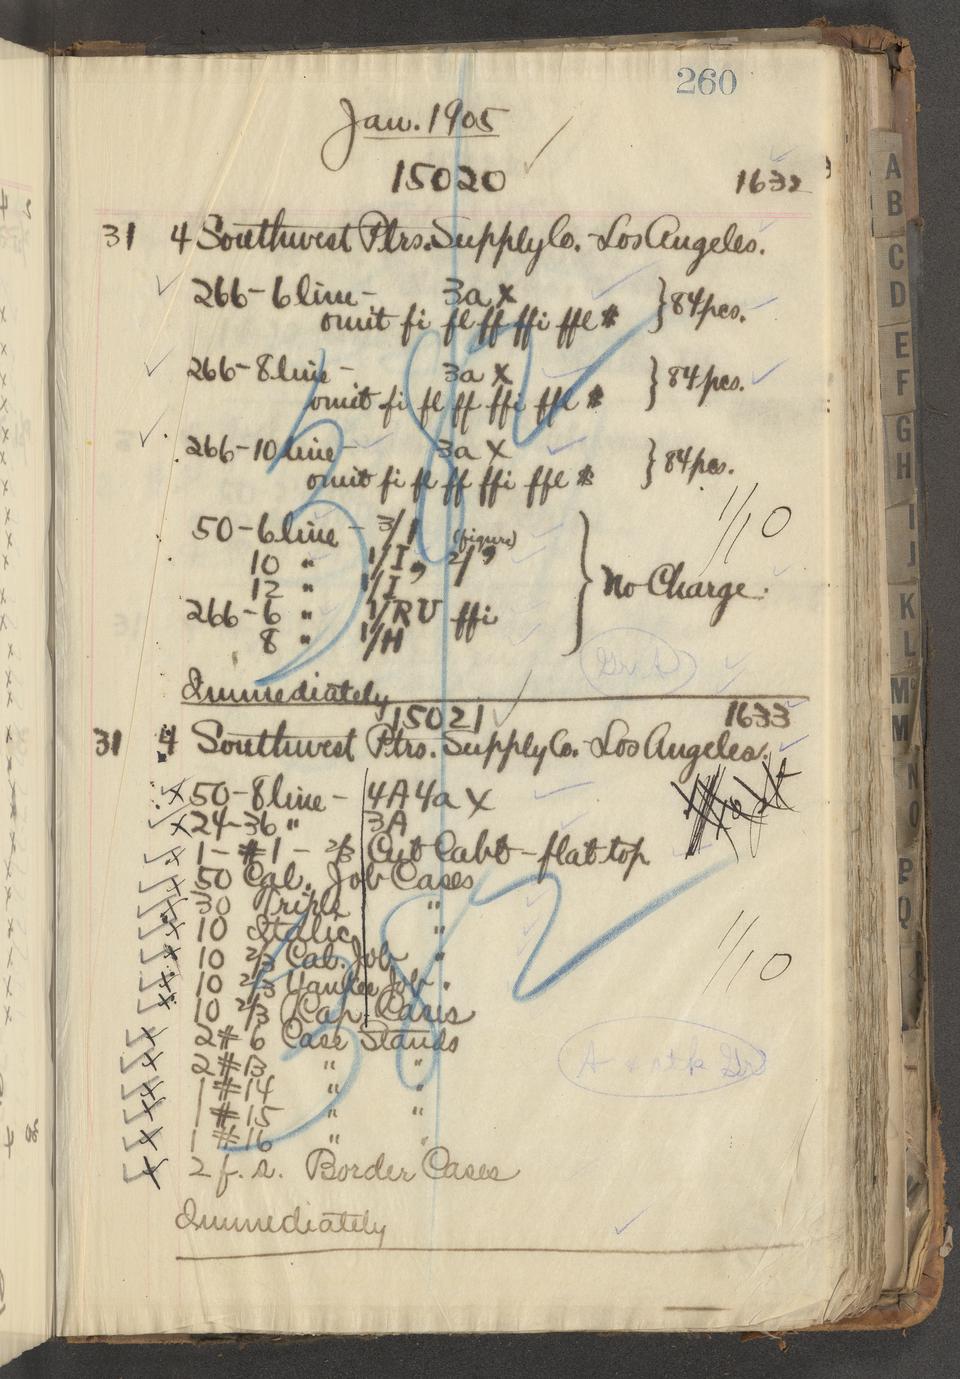 260
Jan. 1905
15020 1632
31 4 Southwest Ptrs. Supply Co. - Los Angeles.
266 - 6 line - 3a X } 84 pcs.
omit fi fl ff ffi ffl $
266 - 8 line - 3a X } 84 pcs.
omit fi fl ff ffi ffl $
266 - 10 line - 3a X } 84 pcs.
omit fi fl ff ffi ffl $
1/10
50 - 6 line - 3/1 (figure)
10 " 1/I, 2/,
12 " 1/I
No Charge.
266 - 6 " 1/RU ffi
8 " 1/H
Immediately
15021 1633
31 4 Southwest Ptrs. Supply Co. - Los Angeles.
50 - 8 line - 4A 4a X
24 - 36 " 3A
1 - #1 - 2/3 Cut Cabt - flat top
50 Cal. Job Cases
30 Triple "
10 Italic "
10 2/3 Cal. Job "
10 2/3 Yankee Job "
10 2/3 Cap Cases
1/10
2 #6 Case Stands
2 #13 " "
1 #14 " "
1 #15 " "
1 #16 " "
2 f. s. Border Cases
Immediately
A
B
C
D
E
F
G
H
I
J
K
L
Mc
M
N
O
P
Q